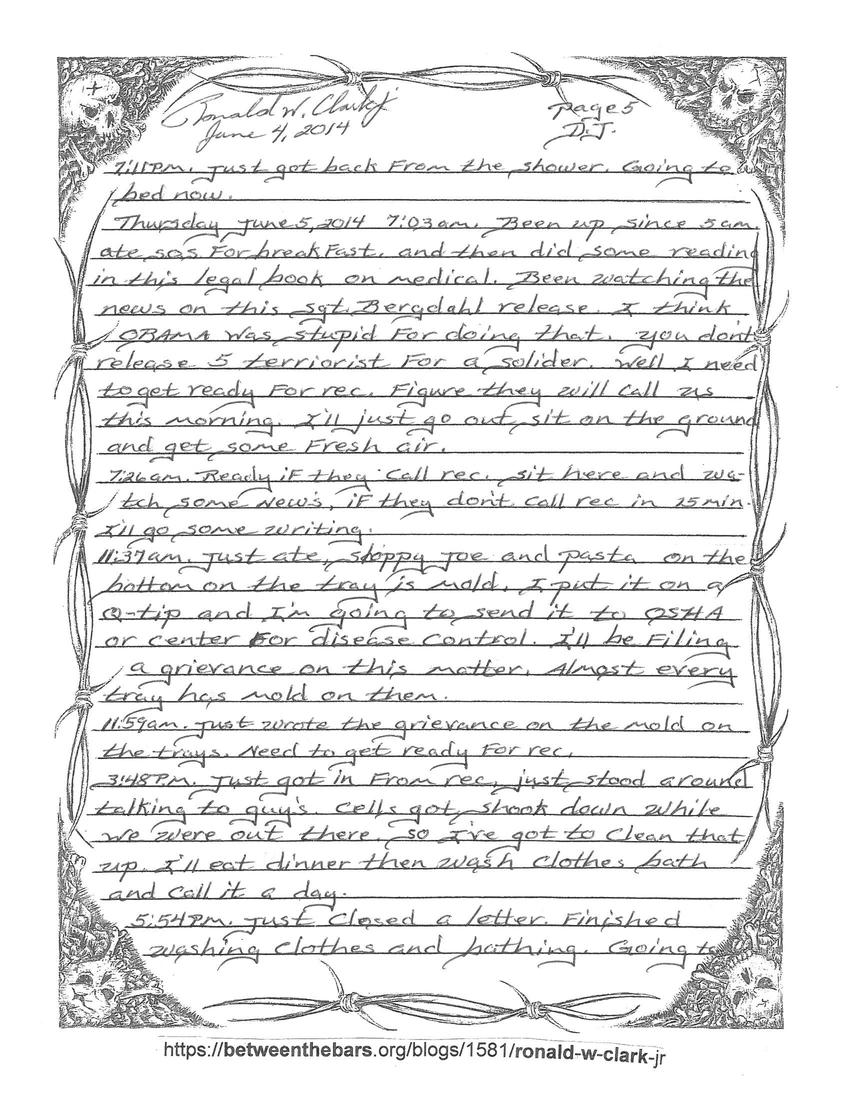 Ronald W. Clark jr
page 5
June 4, 2014
D.J.
7:11PM. Just got back From the shower. Going to
bed now.
Thursday June 5, 2014 7:03am. Been up since 5am
ate sos For breakFast. and then did some reading
in this legal book on medical. Been watching the
news on this sgt. Bergdahl release. I think
OBAMA was stupid For doing that. you don't
release 5 terriorist For a solider. Well I need
to get ready For rec. Figure they will call us
this morning. I'll just go out, sit on the ground
and get some Fresh air.
7:26am. Ready iF they call rec. sit here and wa-
tch some News, iF they don't call rec in 15 min.
I'll go some writing.
11:37am. Just ate, sloppy joe and pasta on the
bottom on the tray is mold. I put it on a
Q-tip and I'm going to send it to OSHA
or center For disease control. I'll be Filing
a grievance on this matter. Almost every
tray has mold on them.
11:59am. Just wrote the grievance on the mold on
the trays. Need to get ready For rec.
3:48P.M. Just got in From rec, just stood around
talking to guy's. Cells got shook down while
we were out there. so I've got to Clean that
up. I'll eat dinner then wash clothes bath
and call it a day.
5:54P.M. Just Closed a letter. Finished
washing clothes and bathing. Going to
https://betweenthebars.org/blogs/1581/ronald-w-clark-jr